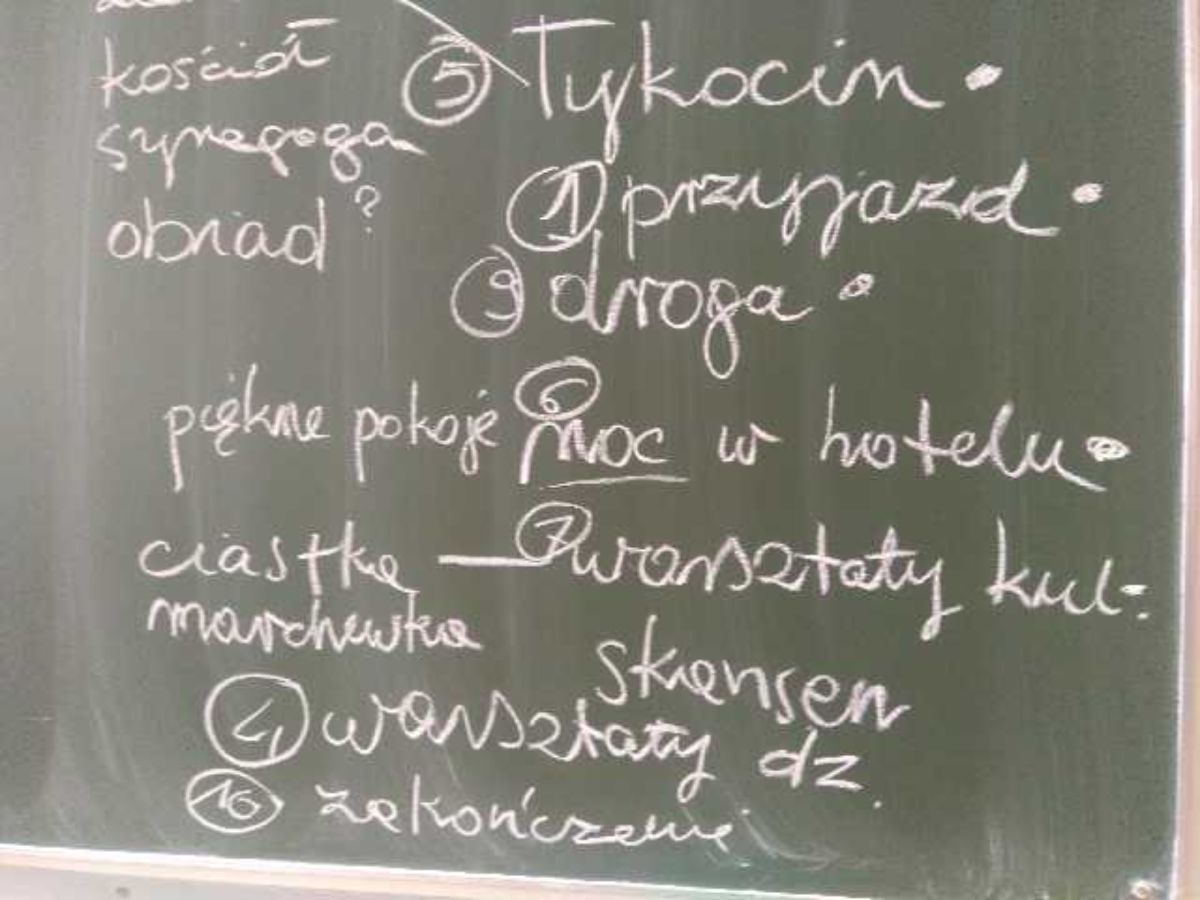 kościół ⑤ Tykocin •
synagoga
① przyjazd •
obiad ?
⑨ droga •
piękne pokoje ⑥ noc w hotelu •
ciastka — ⑦ warsztaty kul.
marchewka
skansen
④ warsztaty dz.
⑩ zakończenie